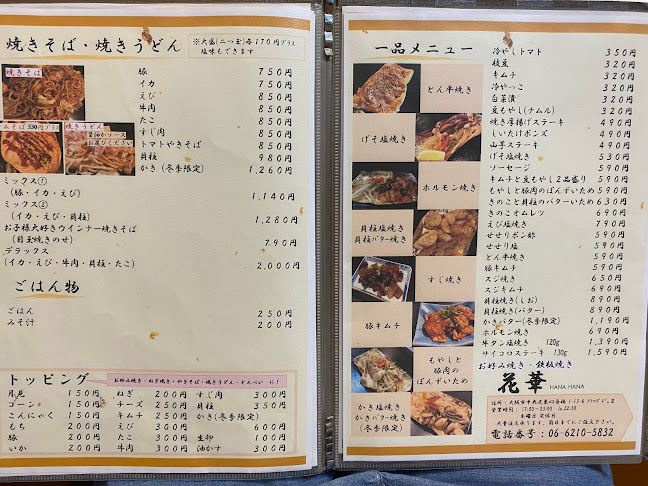 焼きそば・焼きうどん
※大盛(二つ玉)各170円プラス
塩味もできます
焼きそば
オムそば330円プラス
焼きうどん
醤油かソース
お選びください
豚 750円
イカ 750円
えび 850円
牛肉 850円
たこ 850円
すじ肉 850円
トマトやきそば 850円
貝柱 980円
かき(冬季限定) 1,260円
ミックス①
(豚・イカ・えび) 1,140円
ミックス②
(イカ・えび・貝柱) 1,280円
お子様大好きウインナー焼きそば
(目玉焼きのせ) 790円
デラックス
(イカ・えび・牛肉・貝柱・たこ) 2,000円
ごはん物
ごはん 250円
みそ汁 200円
トッピング
お好み焼き・ねぎ焼き・やきそば・焼きうどん・とんぺい に!
月見 150円 ねぎ 200円 すじ肉 300円
コーン 150円 チーズ 250円 貝柱 350円
こんにゃく 150円 キムチ 250円 かき(冬季限定)
もち 200円 えび 300円 600円
豚 200円 たこ 300円 生卵 100円
いか 200円 牛肉 300円 油かす 300円
一品メニュー
とん平焼き
げそ塩焼き
ホルモン焼き
貝柱塩焼き
貝柱バター焼き
すじ焼き
豚キムチ
もやしと
豚肉の
ぽんずいため
かき塩焼き
かきバター焼き
(冬季限定)
冷やしトマト 350円
枝豆 320円
キムチ 320円
冷やっこ 320円
白菜漬 320円
豆もやし(ナムル) 320円
焼き厚揚げステーキ 490円
しいたけポンズ 490円
山芋ステーキ 490円
げそ塩焼き 530円
ソーセージ 590円
キムチと豆もやし2品盛り 590円
もやしと豚肉のぽんずいため 590円
きのこと貝柱のバターいため 630円
きのこオムレツ 690円
えび塩焼き 790円
せせりポン酢 590円
せせり塩 590円
とん平焼き 590円
豚キムチ 590円
スジ焼き 650円
スジキムチ 690円
貝柱焼き(しお) 890円
貝柱焼き(バター) 890円
かきバター(冬季限定) 1,190円
ホルモン焼き 690円
牛タン塩焼き 120g 1,390円
サイコロステーキ 130g 1,590円
お好み焼き・鉄板焼き
花華 HANA HANA
営業時間:17:00~23:00
木曜日 定休日
大量注文承ります。前日までにご注文下さい。
電話番号:06-6210-5832